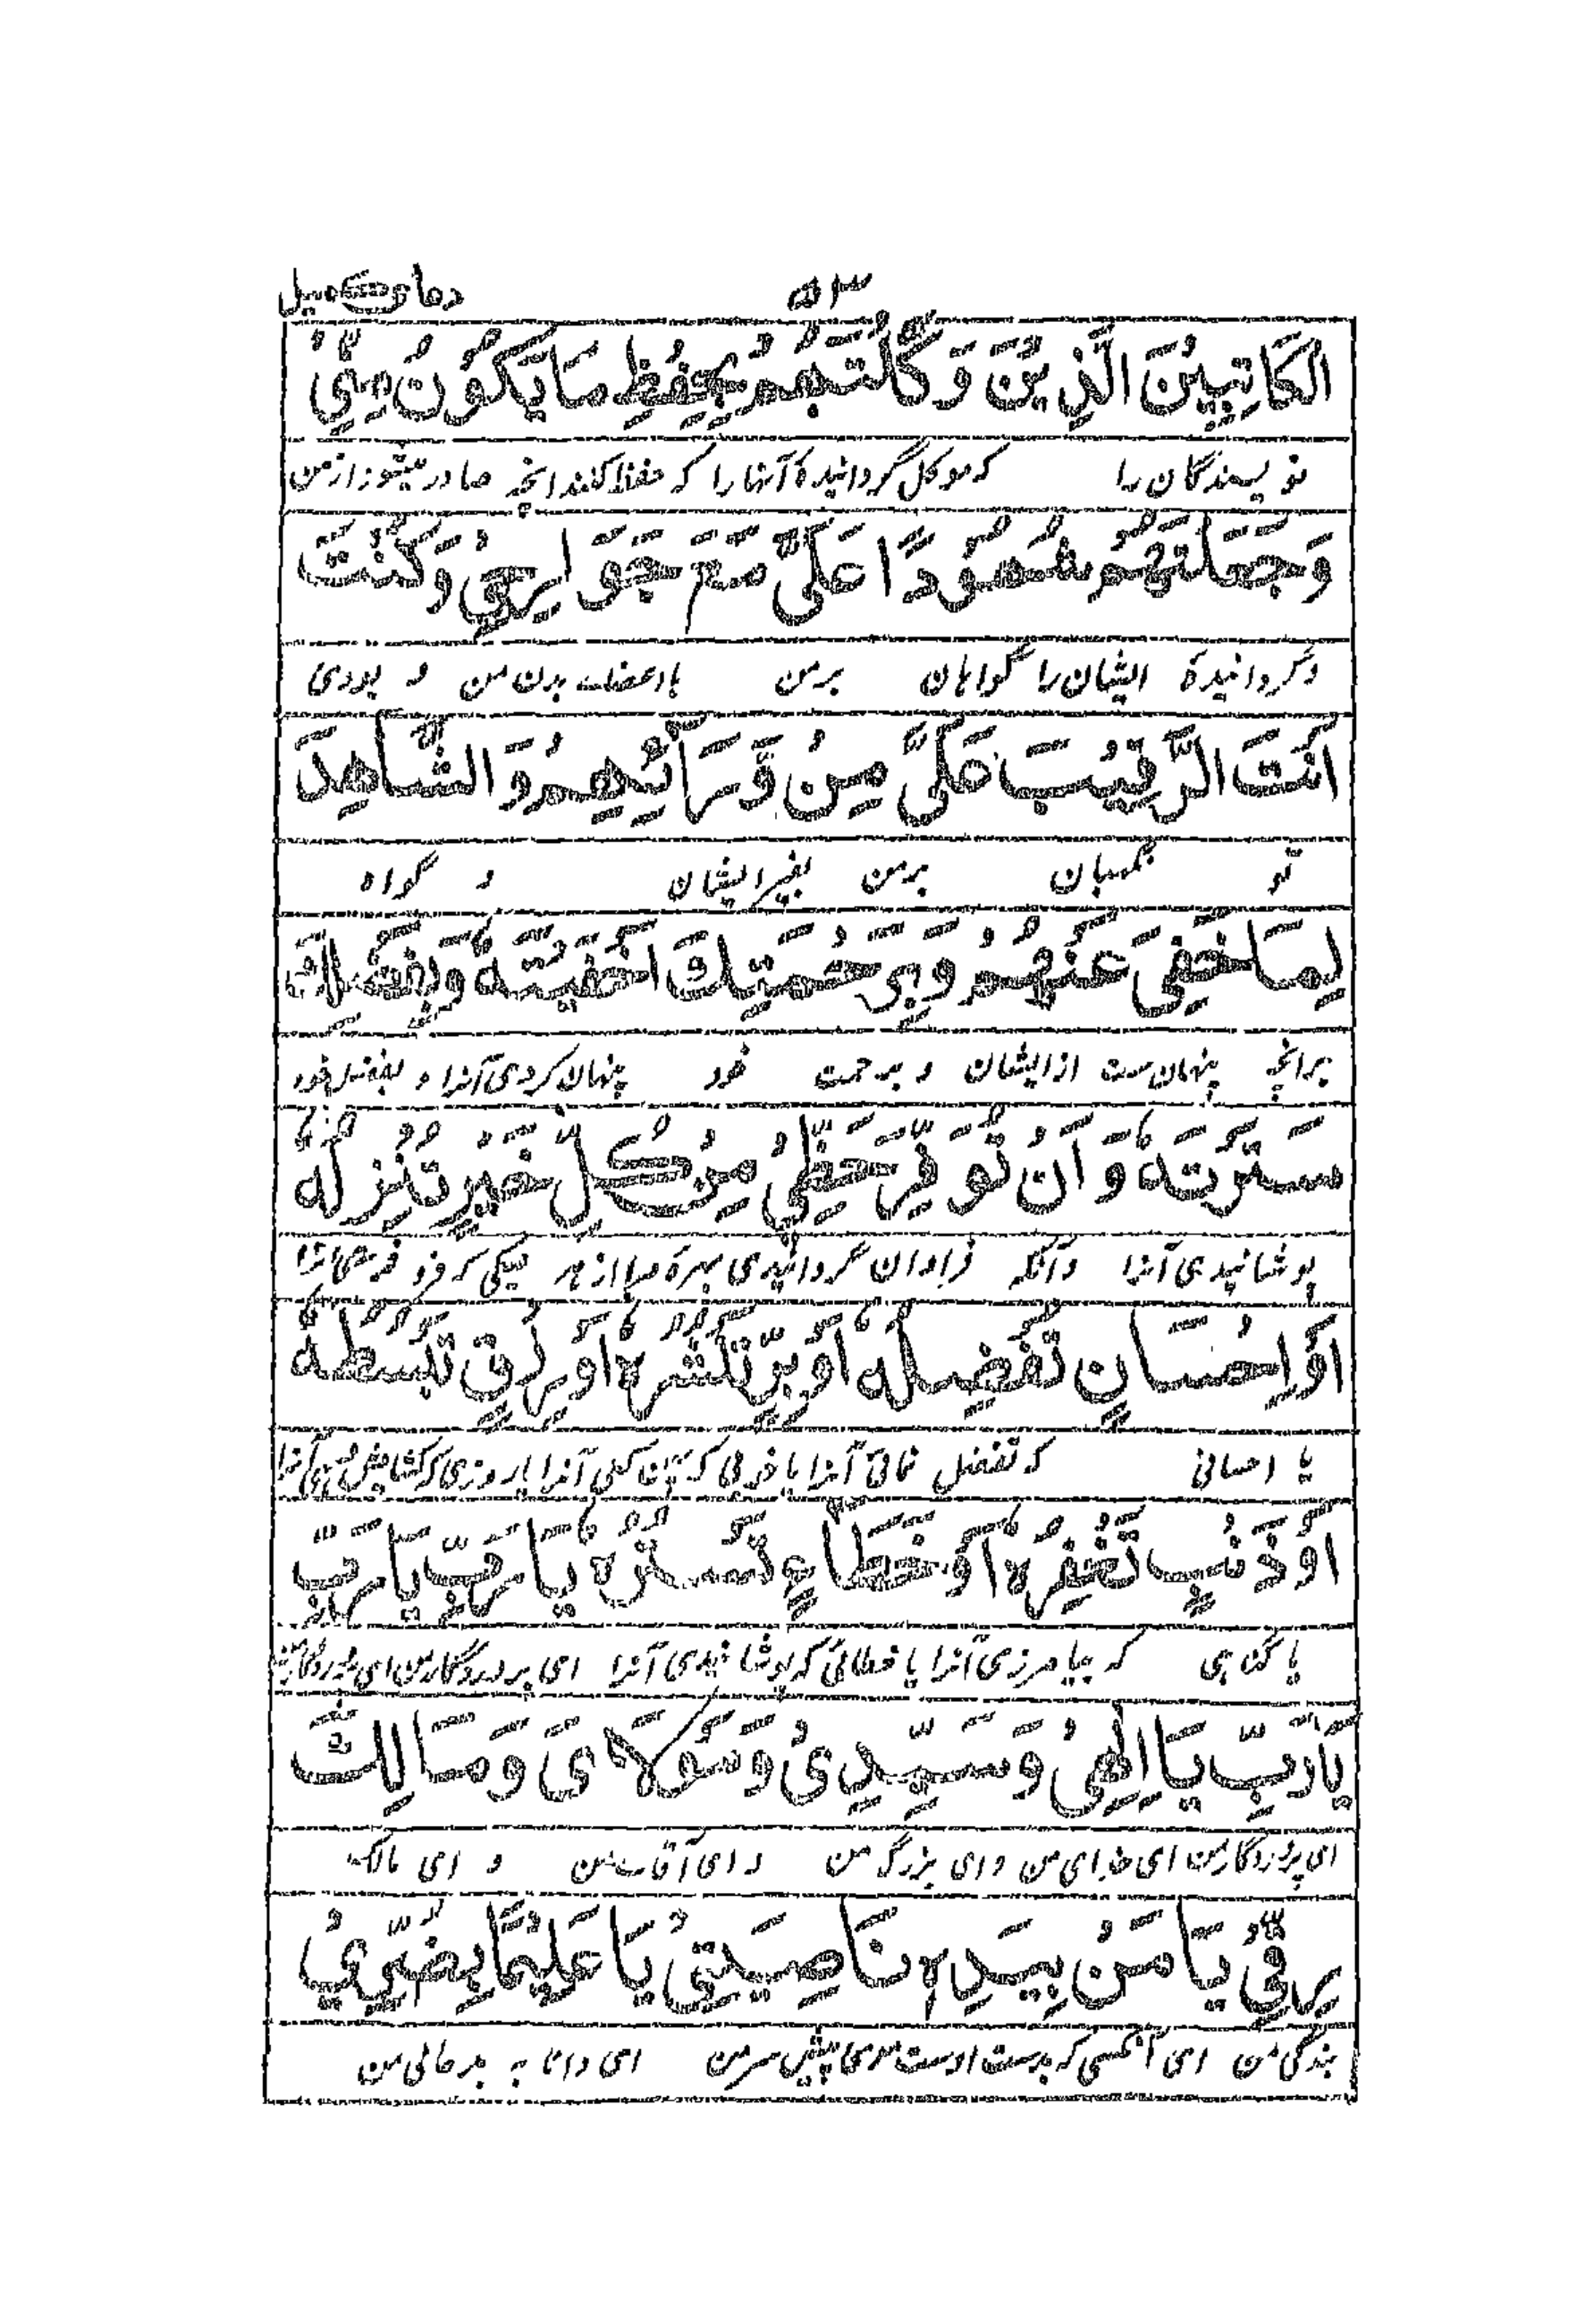 ۵۳ دعای کمیل
الْكَاتِبِيْنَ الَّذِيْنَ وَكَّلْتَهُمْ بِحِفْظِ مَا يَكُوْنُ مِنِّيْ
نویسندگان را که موکل گردانیدهٔ آنها را که حفظ کنند انچه صادر میشود از من
وَجَعَلْتَهُمْ شُهُوْدًا عَلَيَّ مَعَ جَوَارِحِيْ وَكُنْتَ
و گردانیدهٔ ایشان را گواهان برمن با اعضاے بدن من و بودی
اَنْتَ الرَّقِيْبَ عَلَيَّ مِنْ وَّرَآئِهِمْ وَ الشَّاهِدَ
تو نگهبان برمن بغیر ایشان و گواه
لِمَا خَفِيَ عَنْهُمْ وَبِرَحْمَتِكَ اَخْفَيْتَهٗ وَبِفَضْلِكَ
برانچه پنهان ست از ایشان و برحمت خود پنهان کردی آنرا و بفضل خود
سَتَرْتَهٗ وَ اَنْ تُوَفِّرَ حَظِّيْ مِنْ كُلِّ خَيْرٍ تُنْزِلُهٗ
پوشانیدی آنرا و آنکه فراوان گردانیدی بهرهٔ مرا از هر نیکی که فرو فرستی آنرا
اَوْ اِحْسَانٍ تُفْضِلُهٗ اَوْ بِرٍّ تَنْشُرُهٗ اَوْ رِزْقٍ تَبْسُطُهٗ
یا احسانی که تفضل نمائی آنرا یا خوبی که آنرا یا روزی که آنرا
اَوْ ذَنْبٍ تَغْفِرُهٗ اَوْ خَطَاءٍ تَسْتُرُهٗ يَا رَبِّ يَا رَبِّ
یا گناهی که بیامرزی آنرا یا خطائی که بپوشانیدی آنرا ای پروردگار من ای پروردگار من
يَا رَبِّ يَا اِلٰهِيْ وَسَيِّدِيْ وَمَوْلَايَ وَمَالِكَ
ای پروردگار من ای خدای من و ای بزرگ من و ای آقاے من و ای مالک
رِقِّيْ يَا مَنْ بِيَدِهٖ نَاصِيَتِيْ يَا عَلِيْمًا بِضُرِّيْ
بندگی من ای آنکسی که بدست اوست موی پیش سر من ای دانا به بدحالی من